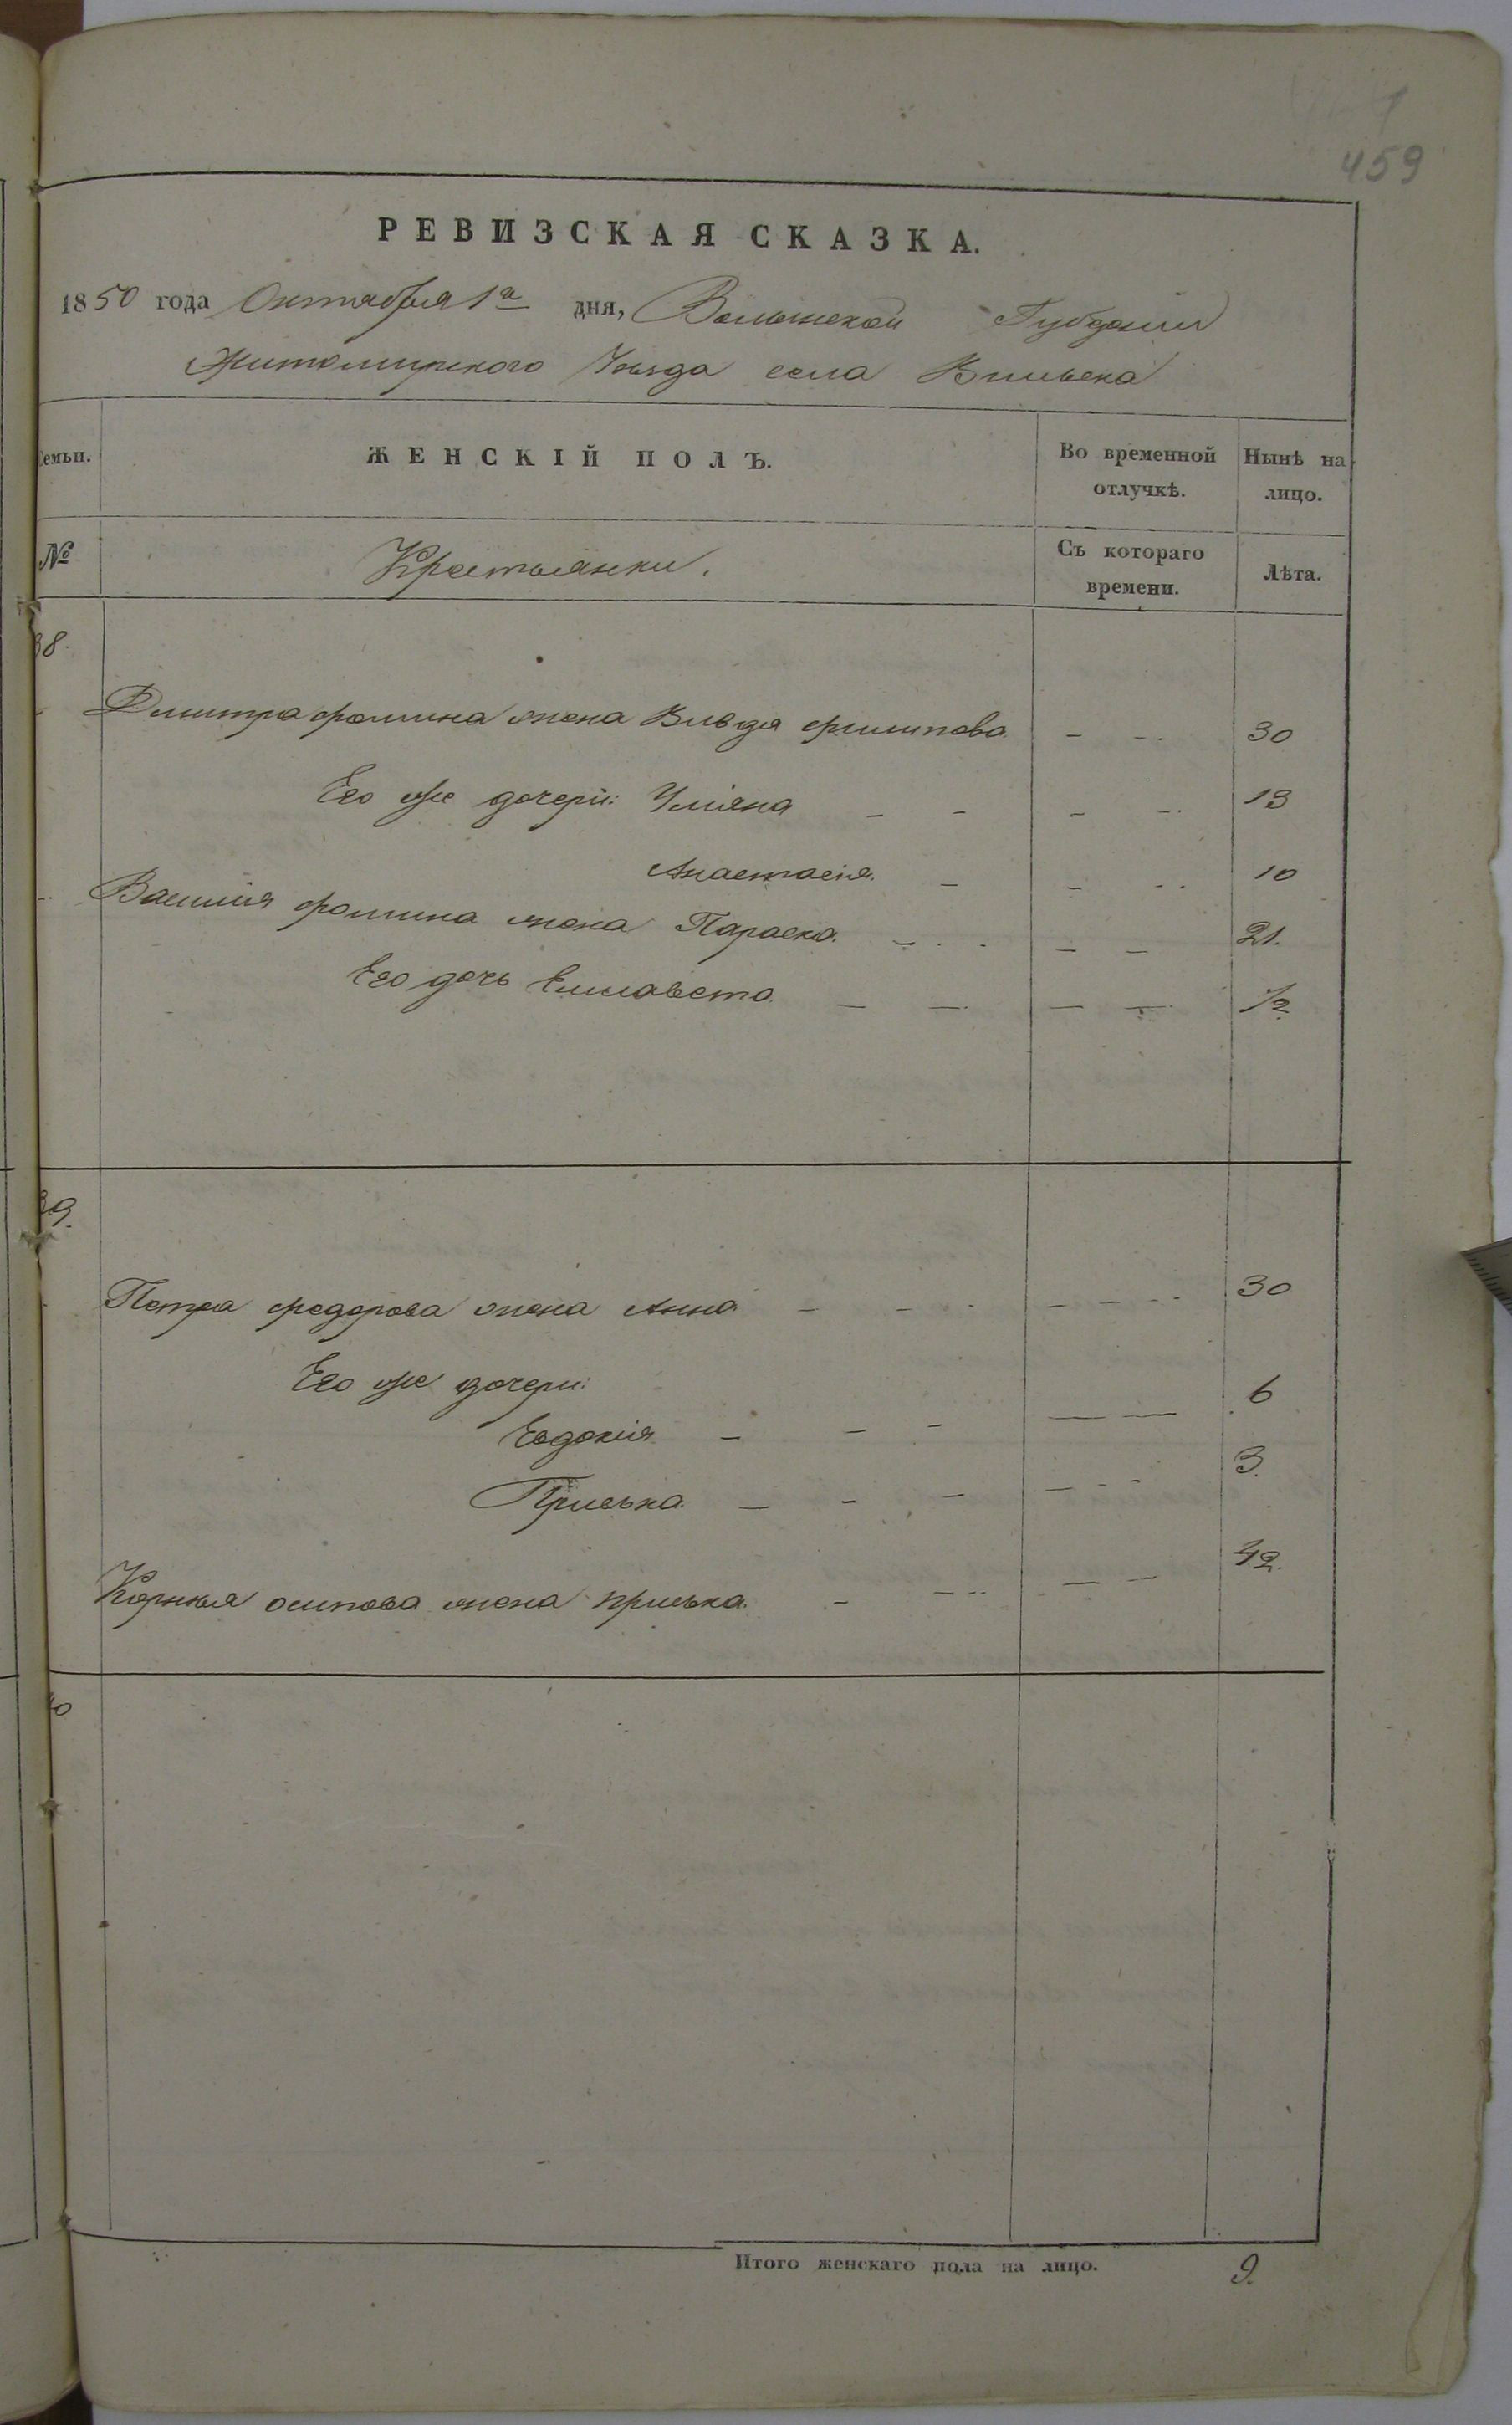 459
РЕВИЗСКАЯ СКАЗКА.
1850 года Октября 1го дня, Волынской Губернии
Житомирского Уезда села Вильска
Семьи. ЖЕНСКІЙ ПОЛЪ. Во временной отлучкѣ. Нынѣ на лицо.
№ Крестьянки. Съ котораго времени. Лѣта.
38.
Дмитра фомина жена Вивдя филипова - - 30
Его же дочери: Уліяна - - - - 13
Анастасія. - - - 10
Василия фомина жена Параска. - - - - 21.
Его дочь Елисавета - - - - 1/2
39.
Петра федорова жена Анна - - - - - 30
Его же дочери:
Евдокія - - - - - 6
Приська. - - - - - - 3.
Корнея осипова жена приська. - - - - 42.
40
Итого женскаго пола на лицо. 9.